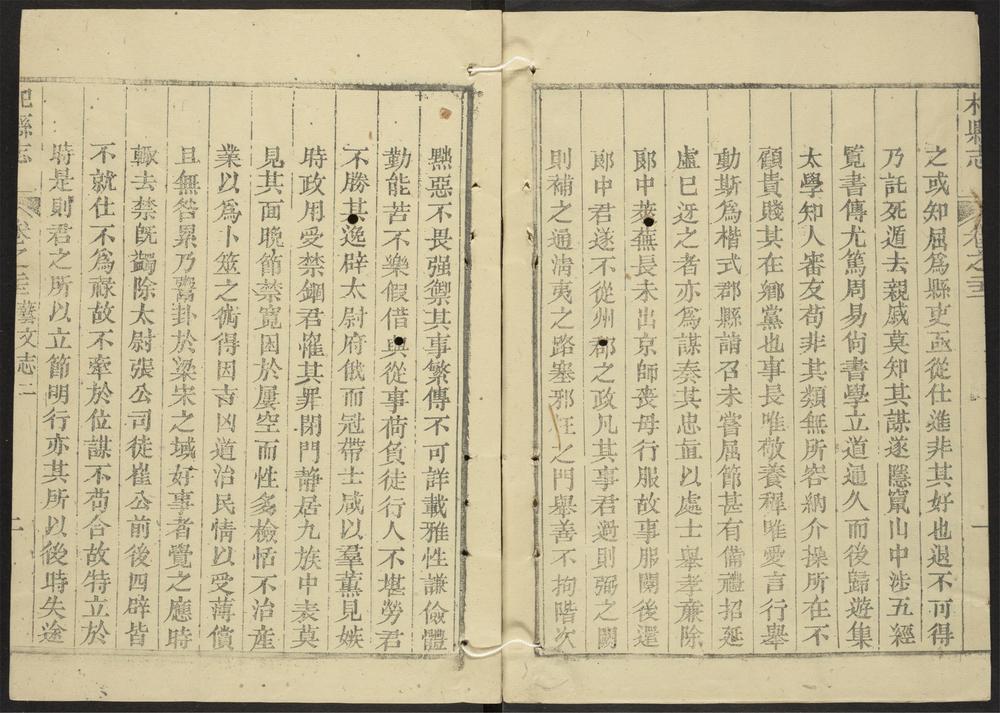 杞縣志 卷之二十三
之或知屈爲縣吏亟從仕進非其好也退不可得
乃託死遁去親戚莫知其謀遂隱竄山中涉五經
覽書傳尤篤周易尙書學立道通久而後歸遊集
太學知人審友苟非其類無所容納介操所在不
顧貴賤其在鄉黨也事長唯敬養稺唯愛言行舉
動斯爲楷式郡縣請召未嘗屈節甚有備禮招延
虛己迓之者亦爲謀奏其忠直以處士舉孝廉除
郞中萊蕪長未出京師喪母行服故事服闋後還
郞中君遂不從州郡之政凡其事君過則弼之闕
則補之通淸夷之路塞邪枉之門舉善不拘階次
黜惡不畏强禦其事繁傳不可詳載雅性謙儉體
勤能苦不樂假借與從事荷負徒行人不堪勞君
不勝其逸辟太尉府俄而冠帶士咸以羣薰見嫉
時政用受禁錮君罹其罪閉門靜居九族中表莫
見其面晚節禁寬困於屢空而性多檢恬不治產
業以爲卜筮之術得因吉凶道治民情以受薄償
且無咎累乃鬻卦於梁宋之域好事者覺之應時
輙去禁旣蠲除太尉張公司徒崔公前後四辟皆
不就仕不爲祿故不牽於位謀不苟合故特立於
時是則君之所以立節明行亦其所以後時失途
杞縣志 卷之 藝文志二 二